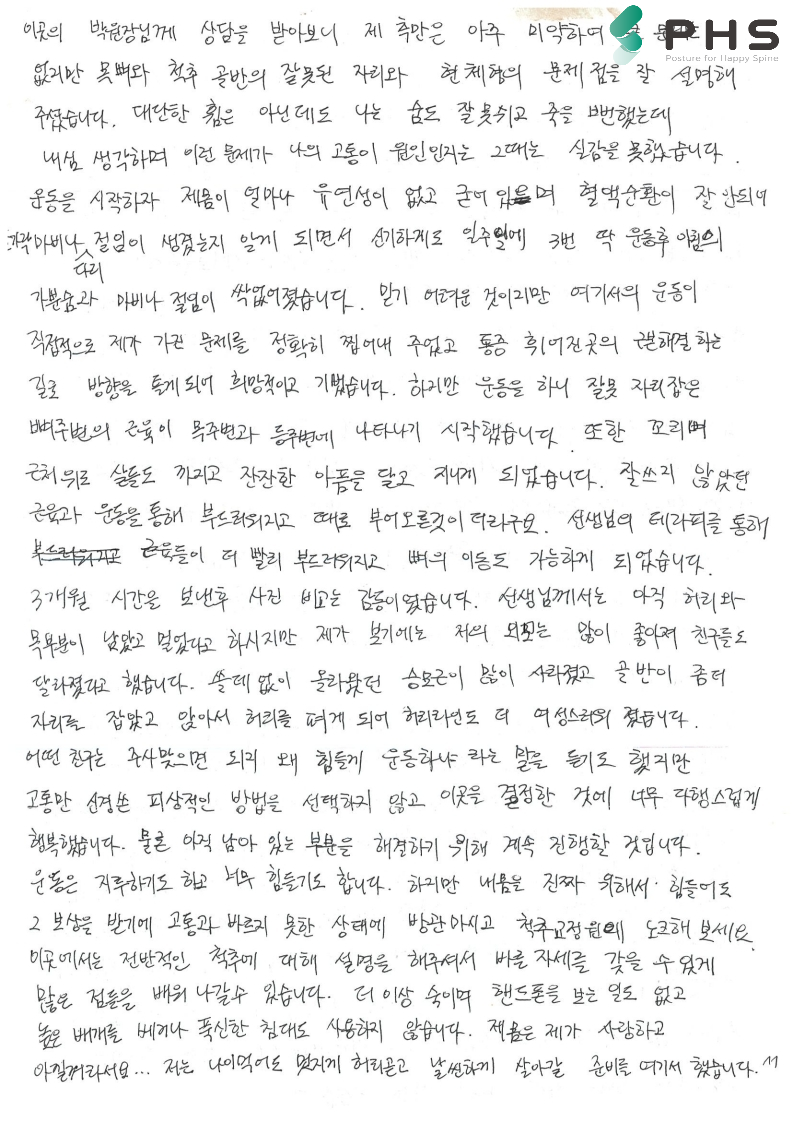 PHS
Posture for Happy Spine
이곳의 박원장님께 상담을 받아보니 제 측만은 아주 미약하여
없지만 목뼈와 척추 골반의 잘못된 자리와 현 체형의 문제점을 잘 설명해
주셨습니다. 대단한 휨은 아닌데도 나는 숨도 잘 못쉬고 죽을 뻔했는데
내심 생각하며 이런 문제가 나의 고통이 원인인지는 그때는 실감을 못했습니다.
운동을 시작하자 제몸이 얼마나 유연성이 없고 굳어 있으며 혈액순환이 잘 안되어
마비나 다리 절임이 생겼는지 알게 되면서 신기하게도 일주일에 3번 딱 운동후 아침의
가뿐숨과 마비나 절임이 싹없어졌습니다. 믿기 어려운 것이지만 여기서의 운동이
직접적으로 제가 가진 문제를 정확히 찝어내 주었고 통증 휘어진곳의 근본해결 하는
길로 방향을 틀게 되어 희망적이고 기뻤습니다. 하지만 운동을 하니 잘못 자리잡은
뼈주변의 근육이 목주변과 등주변에 나타나기 시작했습니다. 또한 꼬리뼈
근처 위로 살들도 까지고 잔잔한 아픔을 달고 지내게 되었습니다. 잘쓰지 않았던
근육과 운동을 통해 부드러워지고 때로 부어오를것이더라구요. 선생님의 테라피를 통해
근육들이 더 빨리 부드러워지고 뼈의 이동도 가능하게 되었습니다.
3개월 시간을 보낸후 사진 비교는 감동이었습니다. 선생님께서는 아직 허리와
목부분이 남았고 멀었다고 하시지만 제가 보기에는 저의 외모는 많이 좋아져 친구들도
달라졌다고 했습니다. 쓸데없이 올라왔던 승모근이 많이 사라졌고 골반이 좀더
자리를 잡았고 앉아서 허리를 펴게 되어 허리라인도 더 여성스러워 졌습니다.
어떤 친구는 주사맞으면 되지 왜 힘들게 운동하냐 라는 말을 듣기도 했지만
고통만 신경쓴 피상적인 방법을 선택하지 않고 이곳을 결정한 것에 너무 다행스럽게
행복했습니다. 물론 아직 남아 있는 부분을 해결하기 위해 계속 진행할 것입니다.
운동은 지루하기도 하고 너무 힘들기도 합니다. 하지만 내몸을 진짜 위해서 힘들어도
그 보상을 받기에 고통과 바르지 못한 상태에 방관마시고 척추교정원에 노크해 보세요.
이곳에서는 전반적인 척추에 대해 설명을 해주셔서 바를 자세를 갖을 수 있게
많은 점들을 배워 나갈수 있습니다. 더 이상 숙이며 핸드폰을 보는 일도 없고
높은 베개를 베거나 푹신한 침대도 사용하지 않습니다. 제몸은 제가 사랑하고
아낄꺼라서요... 저는 나이먹어도 멋지게 허리곧고 날씬하게 살아갈 준비를 여기서 했습니다. ^^